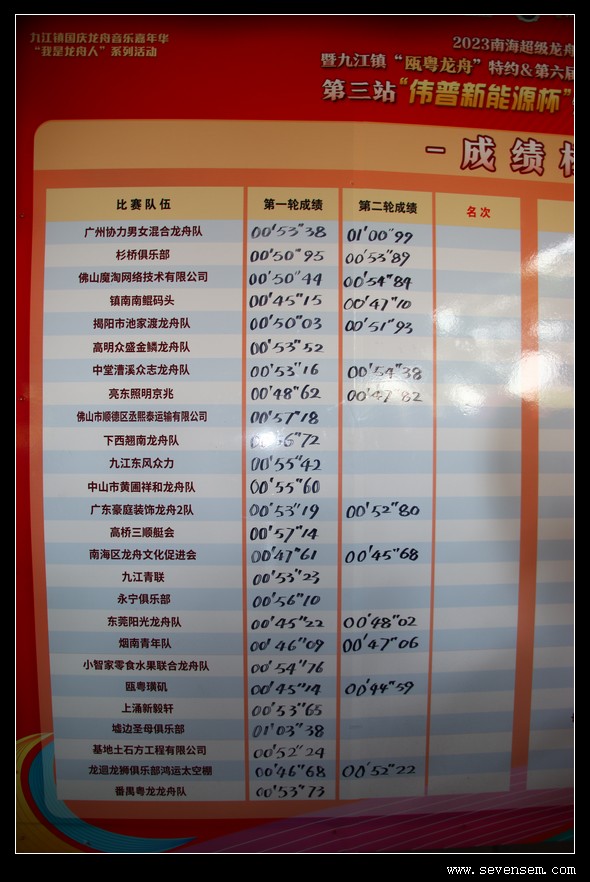 九江镇国庆龙舟音乐嘉年华
“我是龙舟人”系列活动
2023南海超级龙舟
暨九江镇“瓯粤龙舟”特约&第六届
第三站“伟普新能源杯”
-成绩
比赛队伍 第一轮成绩 第二轮成绩 名次
广州协力男女混合龙舟队 00'53"38 01'00"99
杉桥俱乐部 00'50"95 00'53"89
佛山魔淘网络技术有限公司 00'50"44 00'54"84
镇南南鲲码头 00'45"15 00'47"10
揭阳市池家渡龙舟队 00'50"03 00'51"93
高明众盛金鳞龙舟队 00'53"52
中堂漕溪众志龙舟队 00'53"16 00'54"38
亮东照明京兆 00'48"62 00'47"82
佛山市顺德区丞熙泰运输有限公司 00'57"18
下西翘南龙舟队 "72
九江东风众力 00'55"42
中山市黄圃祥和龙舟队 00'55"60
广东豪庭装饰龙舟2队 00'53"19 00'52"80
高桥三顺艇会 00'57"14
南海区龙舟文化促进会 00'47"61 00'45"68
九江青联 00'53"23
永宁俱乐部 00'56"10
东莞阳光龙舟队 00'45"22 00'48"02
烟南青年队 00'46"09 00'47"06
小智家零食水果联合龙舟队 00'54"76
瓯粤璜矶 00'45"14 00'44"59
上涌新毅轩 00'53"65
墟边圣母俱乐部 01'03"38
基地土石方工程有限公司 00'52"24
龙迴龙狮俱乐部鸿运太空棚 00'46"68 00'52"22
番禺粤龙龙舟队 00'53"73
www.sevensem.com